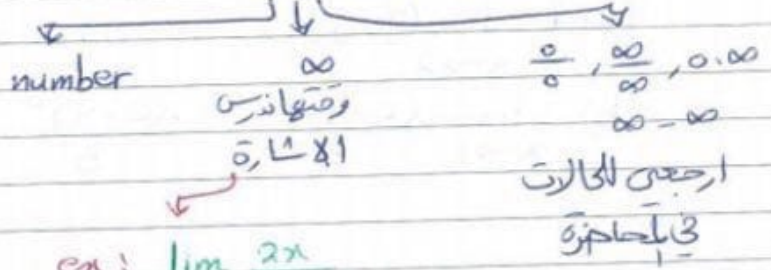 number
∞
وقتها ندرس
الاشارة
0/0 , ∞/∞ , 0.∞
∞ - ∞
ارجعي للحالات
في المحاضرة
ex: lim 2x